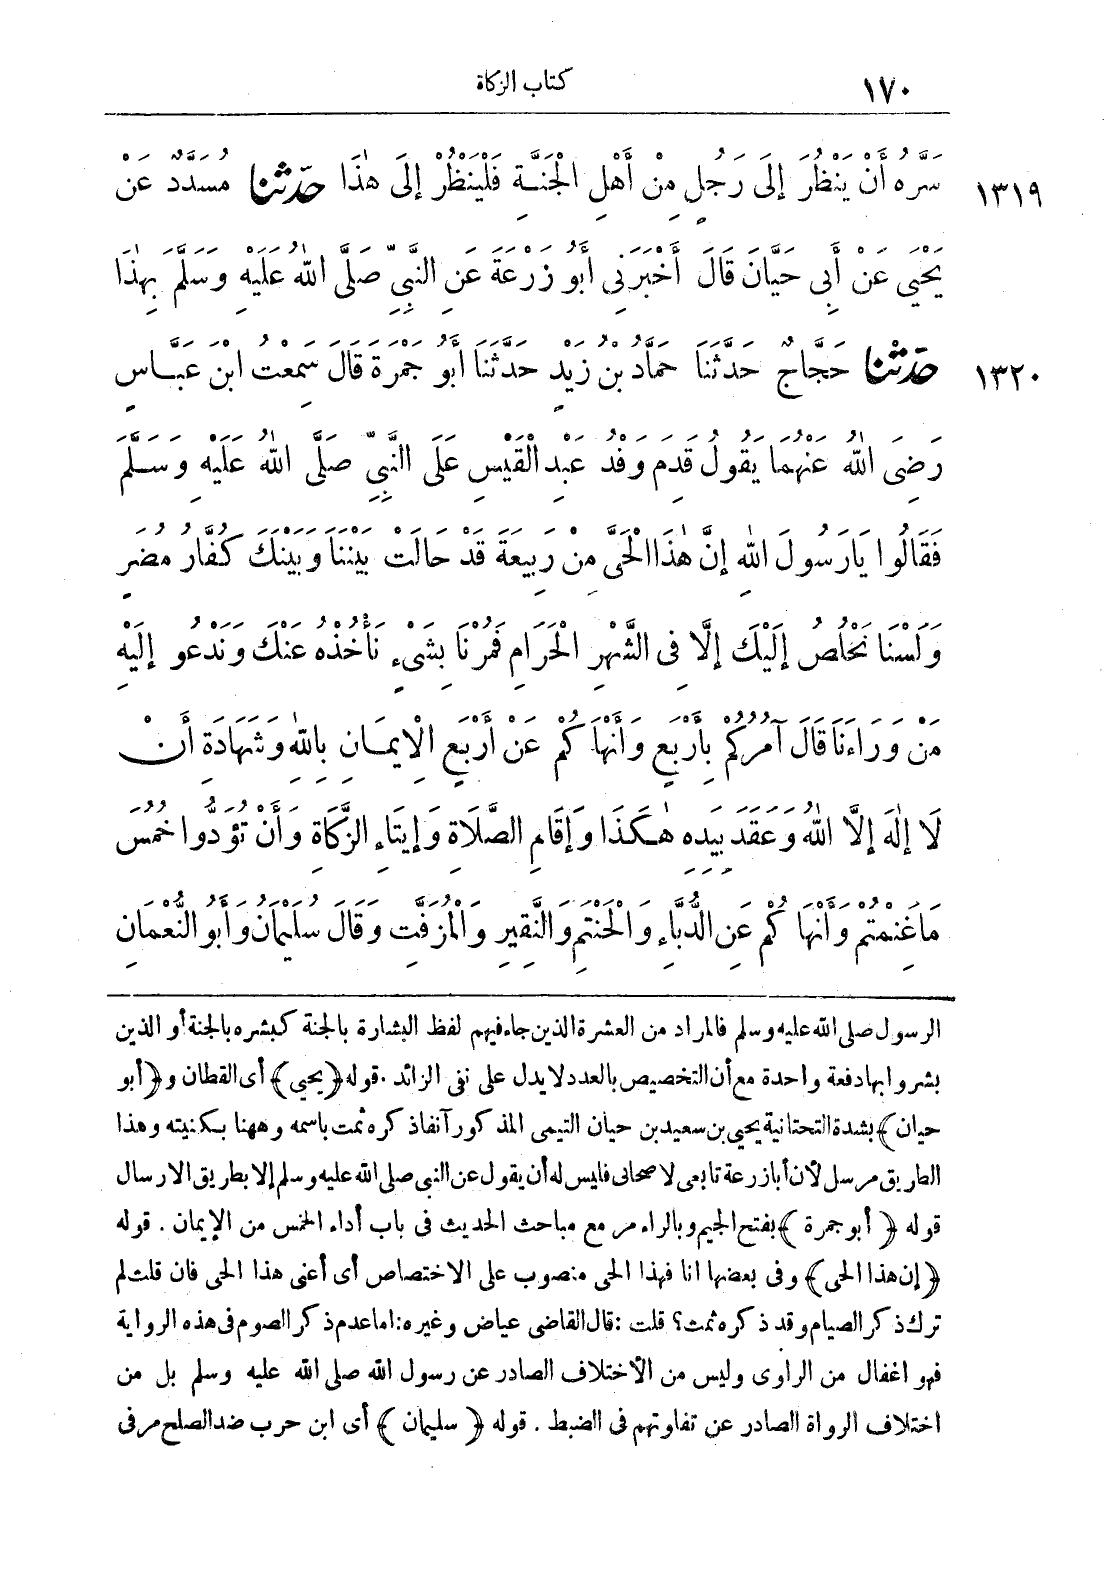 ١٧٠ كتاب الزكاة
١٣١٩ سَرَّهُ أَنْ يَنْظُرَ إِلَى رَجُلٍ مِنْ أَهْلِ الْجَنَّةِ فَلْيَنْظُرْ إِلَى هٰذَا حَدَّثَنَا مُسَدَّدٌ عَنْ
يَحْيَى عَنْ أَبِى حَيَّانَ قَالَ أَخْبَرَنِى أَبُو زُرْعَةَ عَنِ النَّبِىِّ صَلَّى اللهُ عَلَيْهِ وَسَلَّمَ بِهٰذَا
١٣٢٠ حَدَّثَنَا حَجَّاجٌ حَدَّثَنَا حَمَّادُ بْنُ زَيْدٍ حَدَّثَنَا أَبُو جَمْرَةَ قَالَ سَمِعْتُ ابْنَ عَبَّاسٍ
رَضِىَ اللهُ عَنْهُمَا يَقُولُ قَدِمَ وَفْدُ عَبْدِ الْقَيْسِ عَلَى النَّبِىِّ صَلَّى اللهُ عَلَيْهِ وَسَلَّمَ
فَقَالُوا يَارَسُولَ اللهِ إِنَّ هٰذَا الْحَىَّ مِنْ رَبِيعَةَ قَدْ حَالَتْ بَيْنَنَا وَبَيْنَكَ كُفَّارُ مُضَرَ
وَلَسْنَا نَخْلُصُ إِلَيْكَ إِلَّا فِى الشَّهْرِ الْحَرَامِ فَمُرْنَا بِشَىْءٍ نَأْخُذُهُ عَنْكَ وَنَدْعُو إِلَيْهِ
مَنْ وَرَاءَنَا قَالَ آمُرُكُمْ بِأَرْبَعٍ وَأَنْهَاكُمْ عَنْ أَرْبَعٍ الْإِيمَانِ بِاللهِ وَشَهَادَةِ أَنْ
لَا إِلٰهَ إِلَّا اللهُ وَعَقَدَ بِيَدِهِ هٰكَذَا وَإِقَامِ الصَّلَاةِ وَإِيتَاءِ الزَّكَاةِ وَأَنْ تُؤَدُّوا خُمُسَ
مَاغَنِمْتُمْ وَأَنْهَاكُمْ عَنِ الدُّبَّاءِ وَالْحَنْتَمِ وَالنَّقِيرِ وَالْمُزَفَّتِ وَقَالَ سُلَيْمَانُ وَأَبُو النُّعْمَانِ
الرسول صلى الله عليه وسلم فالمراد من العشرة الذين جاء فيهم لفظ البشارة بالجنة كبشره بالجنة أو الذين
بشروا بها دفعة واحدة مع أن التخصيص بالعدد لا يدل على نفى الزائد. قوله ﴿يحيى﴾ أى القطان و ﴿أبو
حيان﴾ بشدة التحتانية يحيى بن سعيد بن حيان التيمى المذكور آنفا ذكره ثمت باسمه وههنا بكنيته وهذا
الطريق مرسل لأن أبا زرعة تابعى لا صحابى فليس له أن يقول عن النبى صلى الله عليه وسلم إلا بطريق الارسال
قوله ﴿أبو جمرة﴾ بفتح الجيم وبالراء مر مع مباحث الحديث فى باب أداء الخمس من الإيمان. قوله
﴿إن هذا الحى﴾ وفى بعضها انا فهذا الحى منصوب على الاختصاص أى أعنى هذا الحى فان قلت لم
ترك ذكر الصيام وقد ذكره ثمت؟ قلت: قال القاضى عياض وغيره: اما عدم ذكر الصوم فى هذه الرواية
فهو اغفال من الراوى وليس من الأختلاف الصادر عن رسول الله صلى الله عليه وسلم بل من
اختلاف الرواة الصادر عن تفاوتهم فى الضبط. قوله ﴿سليمان﴾ أى ابن حرب ضد الصلح مر فى